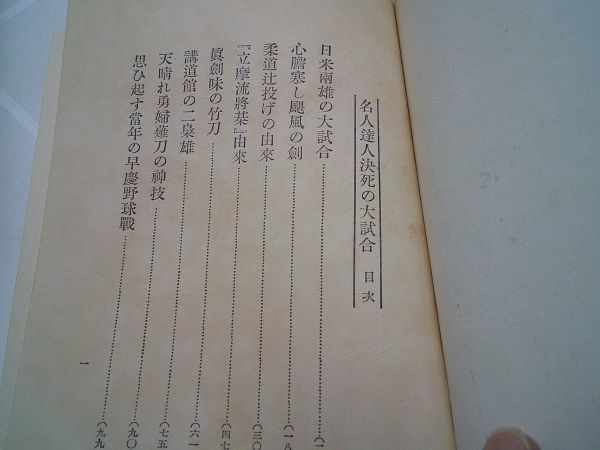 名人達人決死の大試合 目次
日米兩雄の大試合……(一
心膽塞し颶風の劍……(一八
柔道辻投げの由來……(三〇
『立摩流將棊』由來……(四七
眞劍味の竹刀……(六一
講道館の二梟雄……(七五
天晴れ勇婦薙刀の神技……(九〇
思ひ起す當年の早慶野球戰……(九九
一